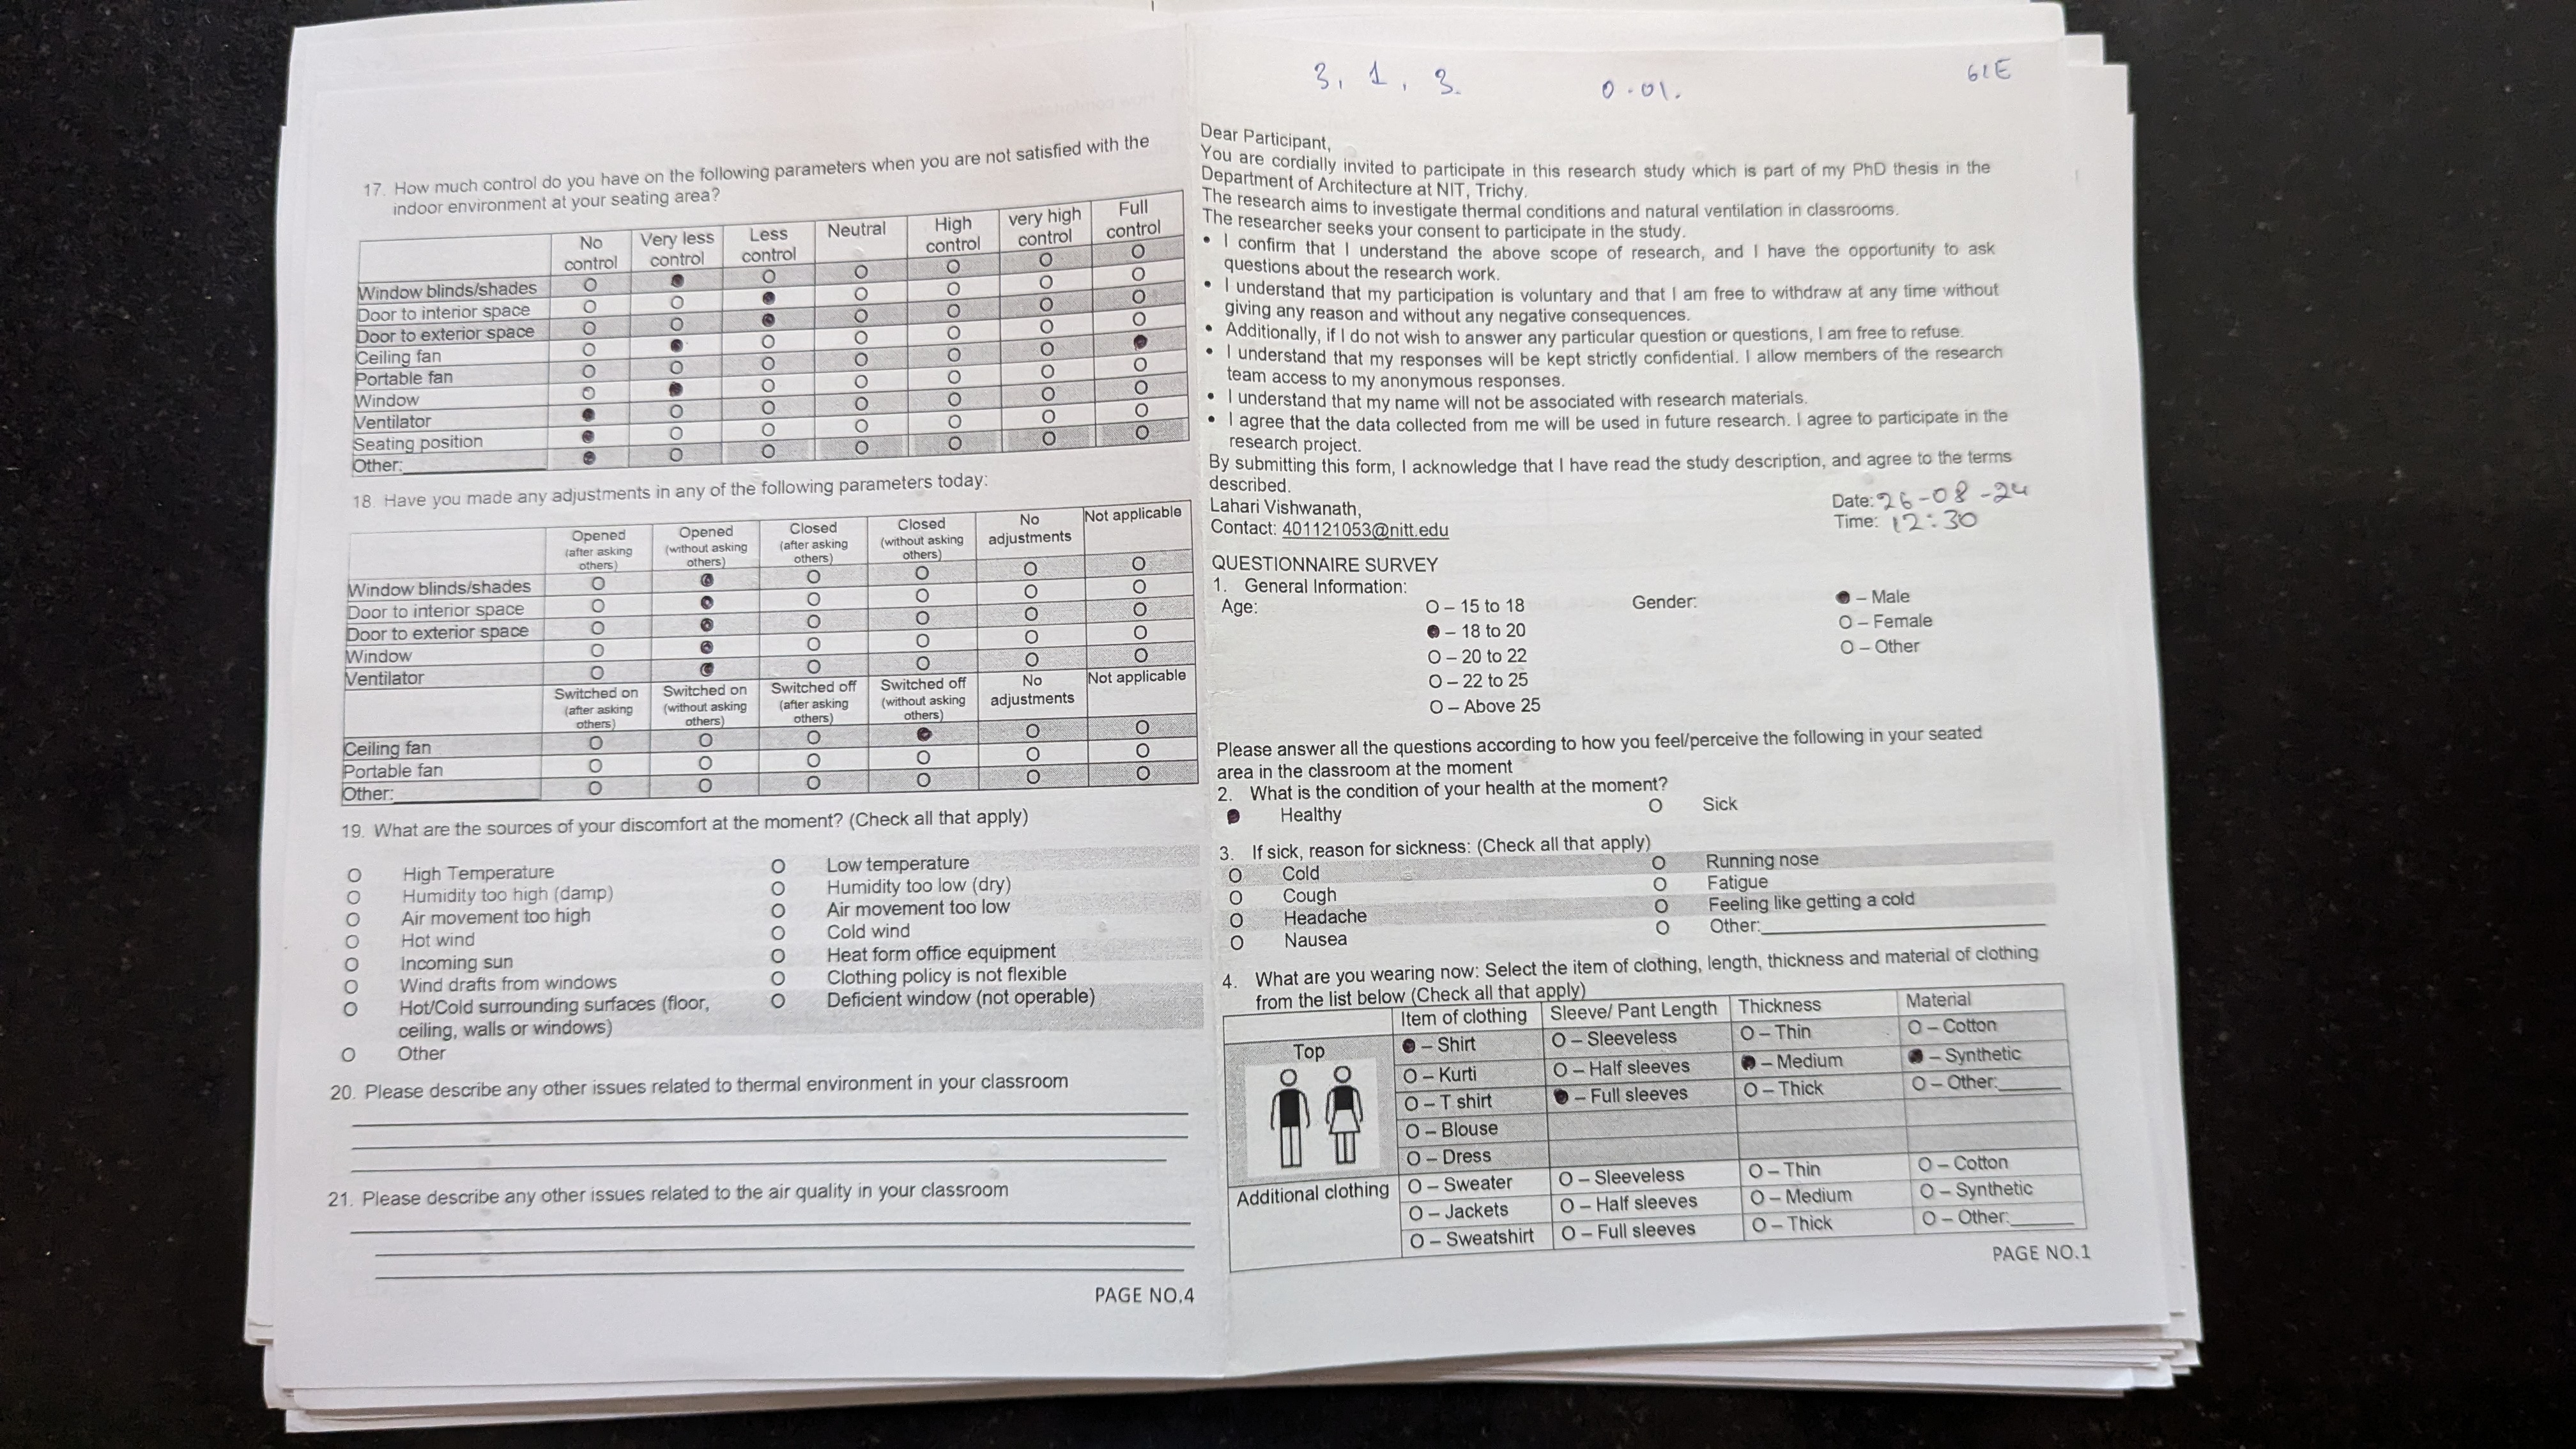 17. How much control do you have on the following parameters when you are not satisfied with the
indoor environment at your seating area?
No control Very less control Less control Neutral High control very high control Full control
Window blinds/shades O ● O O O O O
Door to interior space O O ● O O O O
Door to exterior space O O ● O O O O
Ceiling fan O ● O O O O O
Portable fan O O O O O O ●
Window O ● O O O O O
Ventilator ● O O O O O O
Seating position ● O O O O O O
Other:________ ● O O O O O O
18. Have you made any adjustments in any of the following parameters today:
Opened (after asking others) Opened (without asking others) Closed (after asking others) Closed (without asking others) No adjustments Not applicable
Window blinds/shades O ● O O O O
Door to interior space O ● O O O O
Door to exterior space O ● O O O O
Window O ● O O O O
Ventilator O ● O O O O
Switched on (after asking others) Switched on (without asking others) Switched off (after asking others) Switched off (without asking others) No adjustments Not applicable
Ceiling fan O O O ● O O
Portable fan O O O O O O
Other:________ O O O O O O
19. What are the sources of your discomfort at the moment? (Check all that apply)
O High Temperature O Low temperature
O Humidity too high (damp) O Humidity too low (dry)
O Air movement too high O Air movement too low
O Hot wind O Cold wind
O Incoming sun O Heat form office equipment
O Wind drafts from windows O Clothing policy is not flexible
O Hot/Cold surrounding surfaces (floor, O Deficient window (not operable)
ceiling, walls or windows)
O Other
20. Please describe any other issues related to thermal environment in your classroom
21. Please describe any other issues related to the air quality in your classroom
PAGE NO.4
3, 1, 3. 0.01. 61E
Dear Participant,
You are cordially invited to participate in this research study which is part of my PhD thesis in the
Department of Architecture at NIT, Trichy.
The research aims to investigate thermal conditions and natural ventilation in classrooms.
The researcher seeks your consent to participate in the study.
• I confirm that I understand the above scope of research, and I have the opportunity to ask
questions about the research work.
• I understand that my participation is voluntary and that I am free to withdraw at any time without
giving any reason and without any negative consequences.
• Additionally, if I do not wish to answer any particular question or questions, I am free to refuse.
• I understand that my responses will be kept strictly confidential. I allow members of the research
team access to my anonymous responses.
• I understand that my name will not be associated with research materials.
• I agree that the data collected from me will be used in future research. I agree to participate in the
research project.
By submitting this form, I acknowledge that I have read the study description, and agree to the terms
described.
Lahari Vishwanath, Date: 26-08-24
Contact: 401121053@nitt.edu Time: 12:30
QUESTIONNAIRE SURVEY
1. General Information:
Age: O – 15 to 18 Gender: ● – Male
● – 18 to 20 O – Female
O – 20 to 22 O – Other
O – 22 to 25
O – Above 25
Please answer all the questions according to how you feel/perceive the following in your seated
area in the classroom at the moment
2. What is the condition of your health at the moment?
● Healthy O Sick
3. If sick, reason for sickness: (Check all that apply)
O Cold O Running nose
O Cough O Fatigue
O Headache O Feeling like getting a cold
O Nausea O Other:________
4. What are you wearing now: Select the item of clothing, length, thickness and material of clothing
from the list below (Check all that apply)
Item of clothing Sleeve/ Pant Length Thickness Material
Top ● – Shirt O – Sleeveless O – Thin O – Cotton
O – Kurti O – Half sleeves ● – Medium ● – Synthetic
O – T shirt ● – Full sleeves O – Thick O – Other:______
O – Blouse
O – Dress
Additional clothing O – Sweater O – Sleeveless O – Thin O – Cotton
O – Jackets O – Half sleeves O – Medium O – Synthetic
O – Sweatshirt O – Full sleeves O – Thick O – Other:______
PAGE NO.1